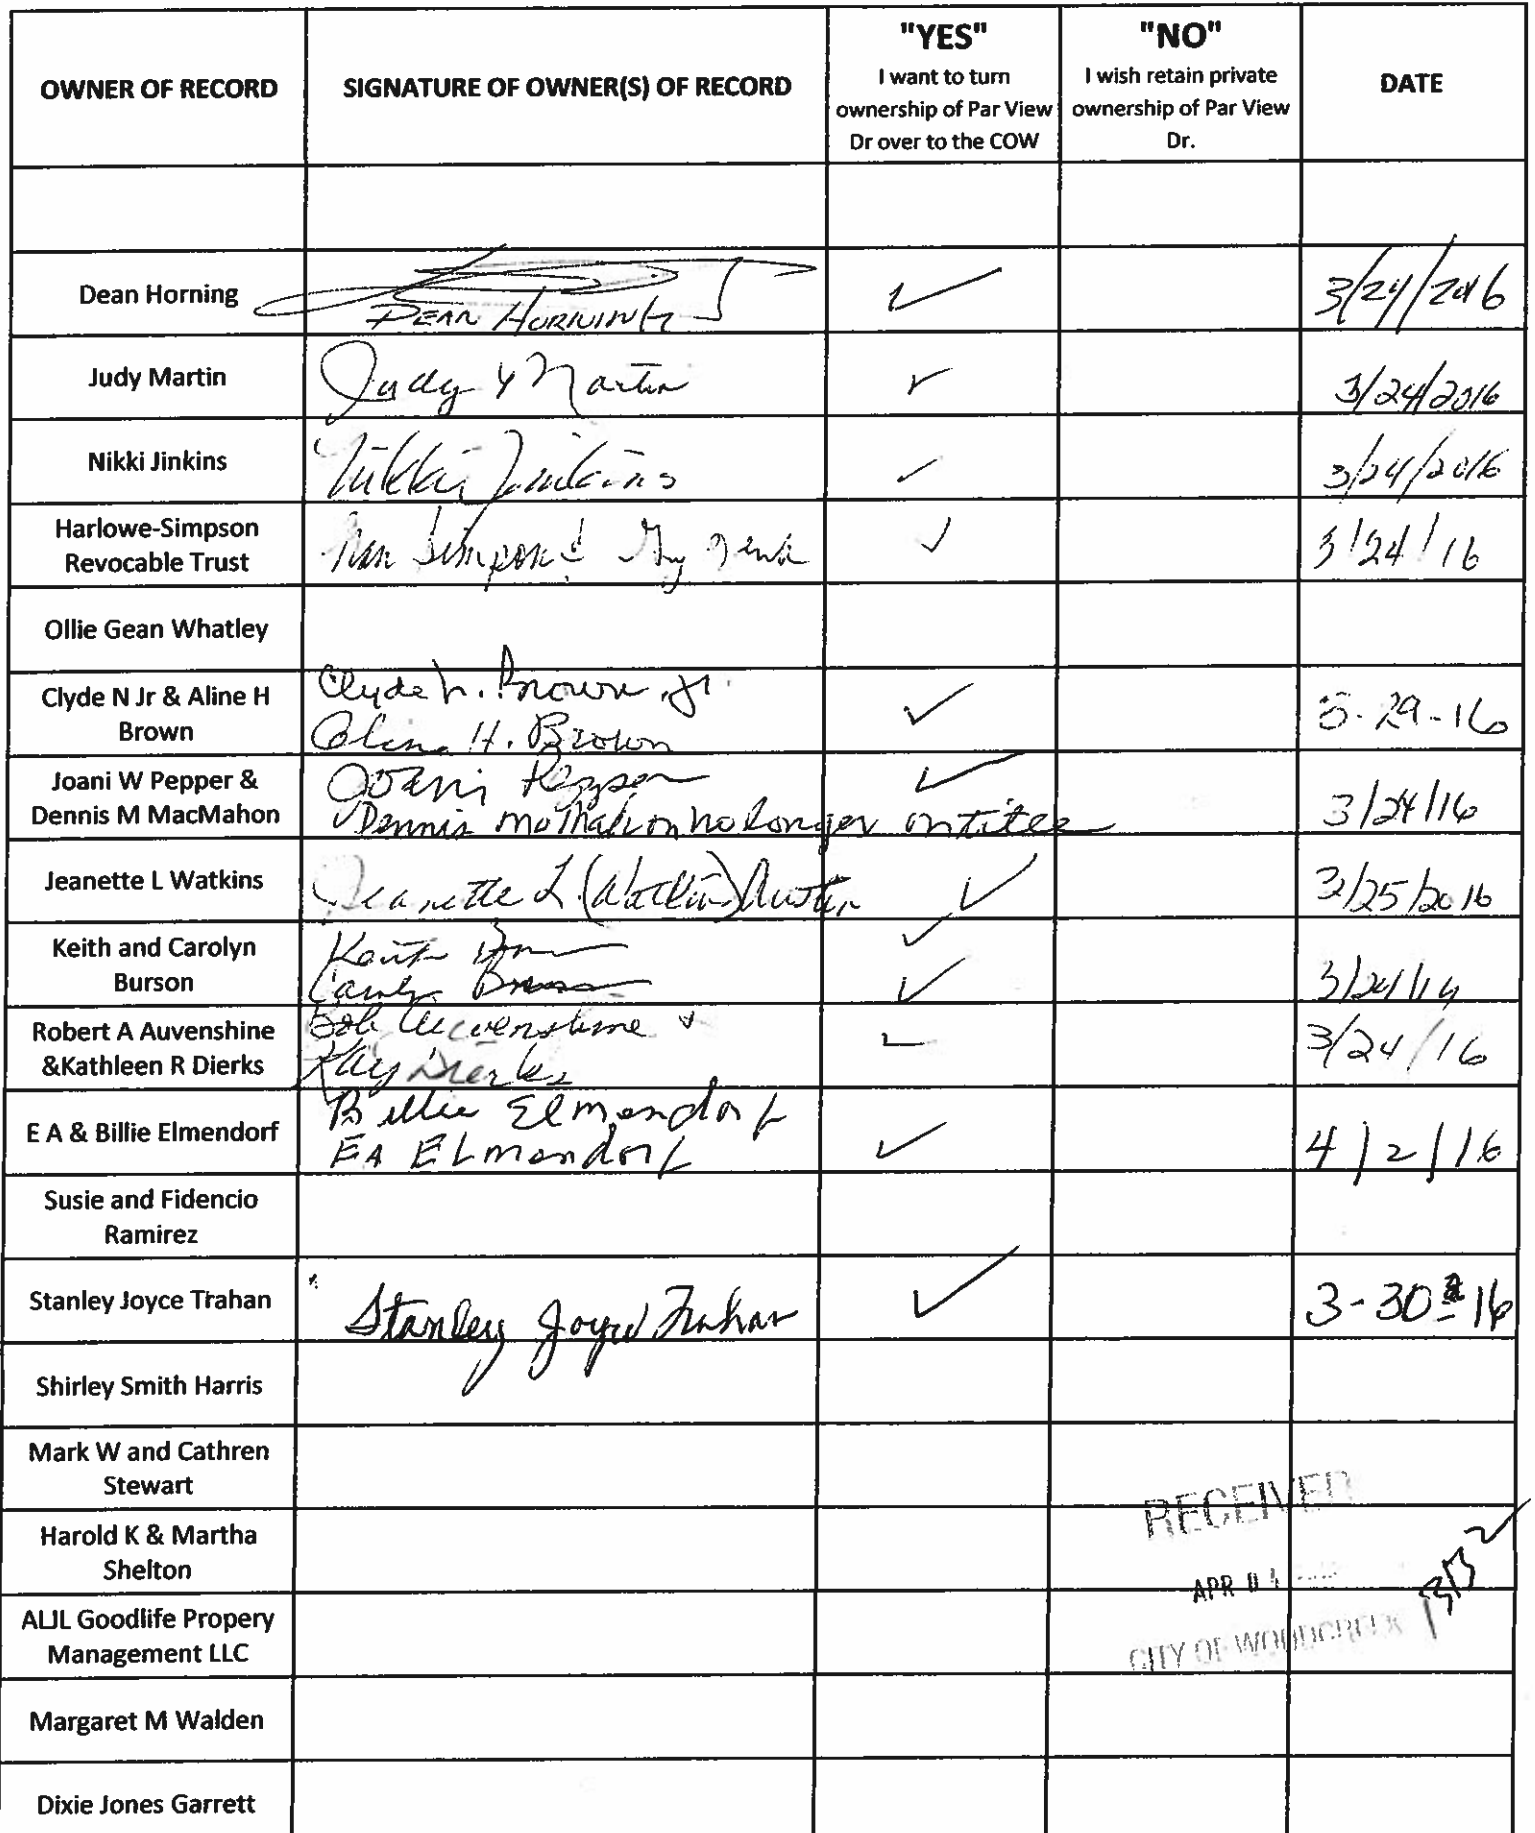 OWNER OF RECORD
SIGNATURE OF OWNER(S) OF RECORD
"YES"
I want to turn
ownership of Par View
Dr over to the COW
"NO"
I wish retain private
ownership of Par View
Dr.
DATE
Dean Horning
DEAN HORNING
3/24/2016
Judy Martin
Judy Y Martin
3/24/2016
Nikki Jinkins
Nikki Jinkins
3/24/2016
Harlowe-Simpson
Revocable Trust
Simpson
3/24/16
Ollie Gean Whatley
Clyde N Jr & Aline H
Brown
Clyde N. Brown, Jr.
Aline H. Brown
-29-16
Joani W Pepper &
Dennis M MacMahon
Joani Pepper
Dennis no longer on title
3/24/16
Jeanette L Watkins
Jeanette L. (Watkins) Austin
3/25/2016
Keith and Carolyn
Burson
Keith
Carolyn Burson
3/24/16
Robert A Auvenshine
&Kathleen R Dierks
Bob Auvenshine &
Kay Dierks
3/24/16
E A & Billie Elmendorf
Billie Elmendorf
EA Elmendorf
4/2/16
Susie and Fidencio
Ramirez
Stanley Joyce Trahan
Stanley Joyce Trahan
3-30-16
Shirley Smith Harris
Mark W and Cathren
Stewart
RECEIVED
Harold K & Martha
Shelton
APR 04
ALJL Goodlife Propery
Management LLC
CITY OF WOODCREEK
Margaret M Walden
Dixie Jones Garrett